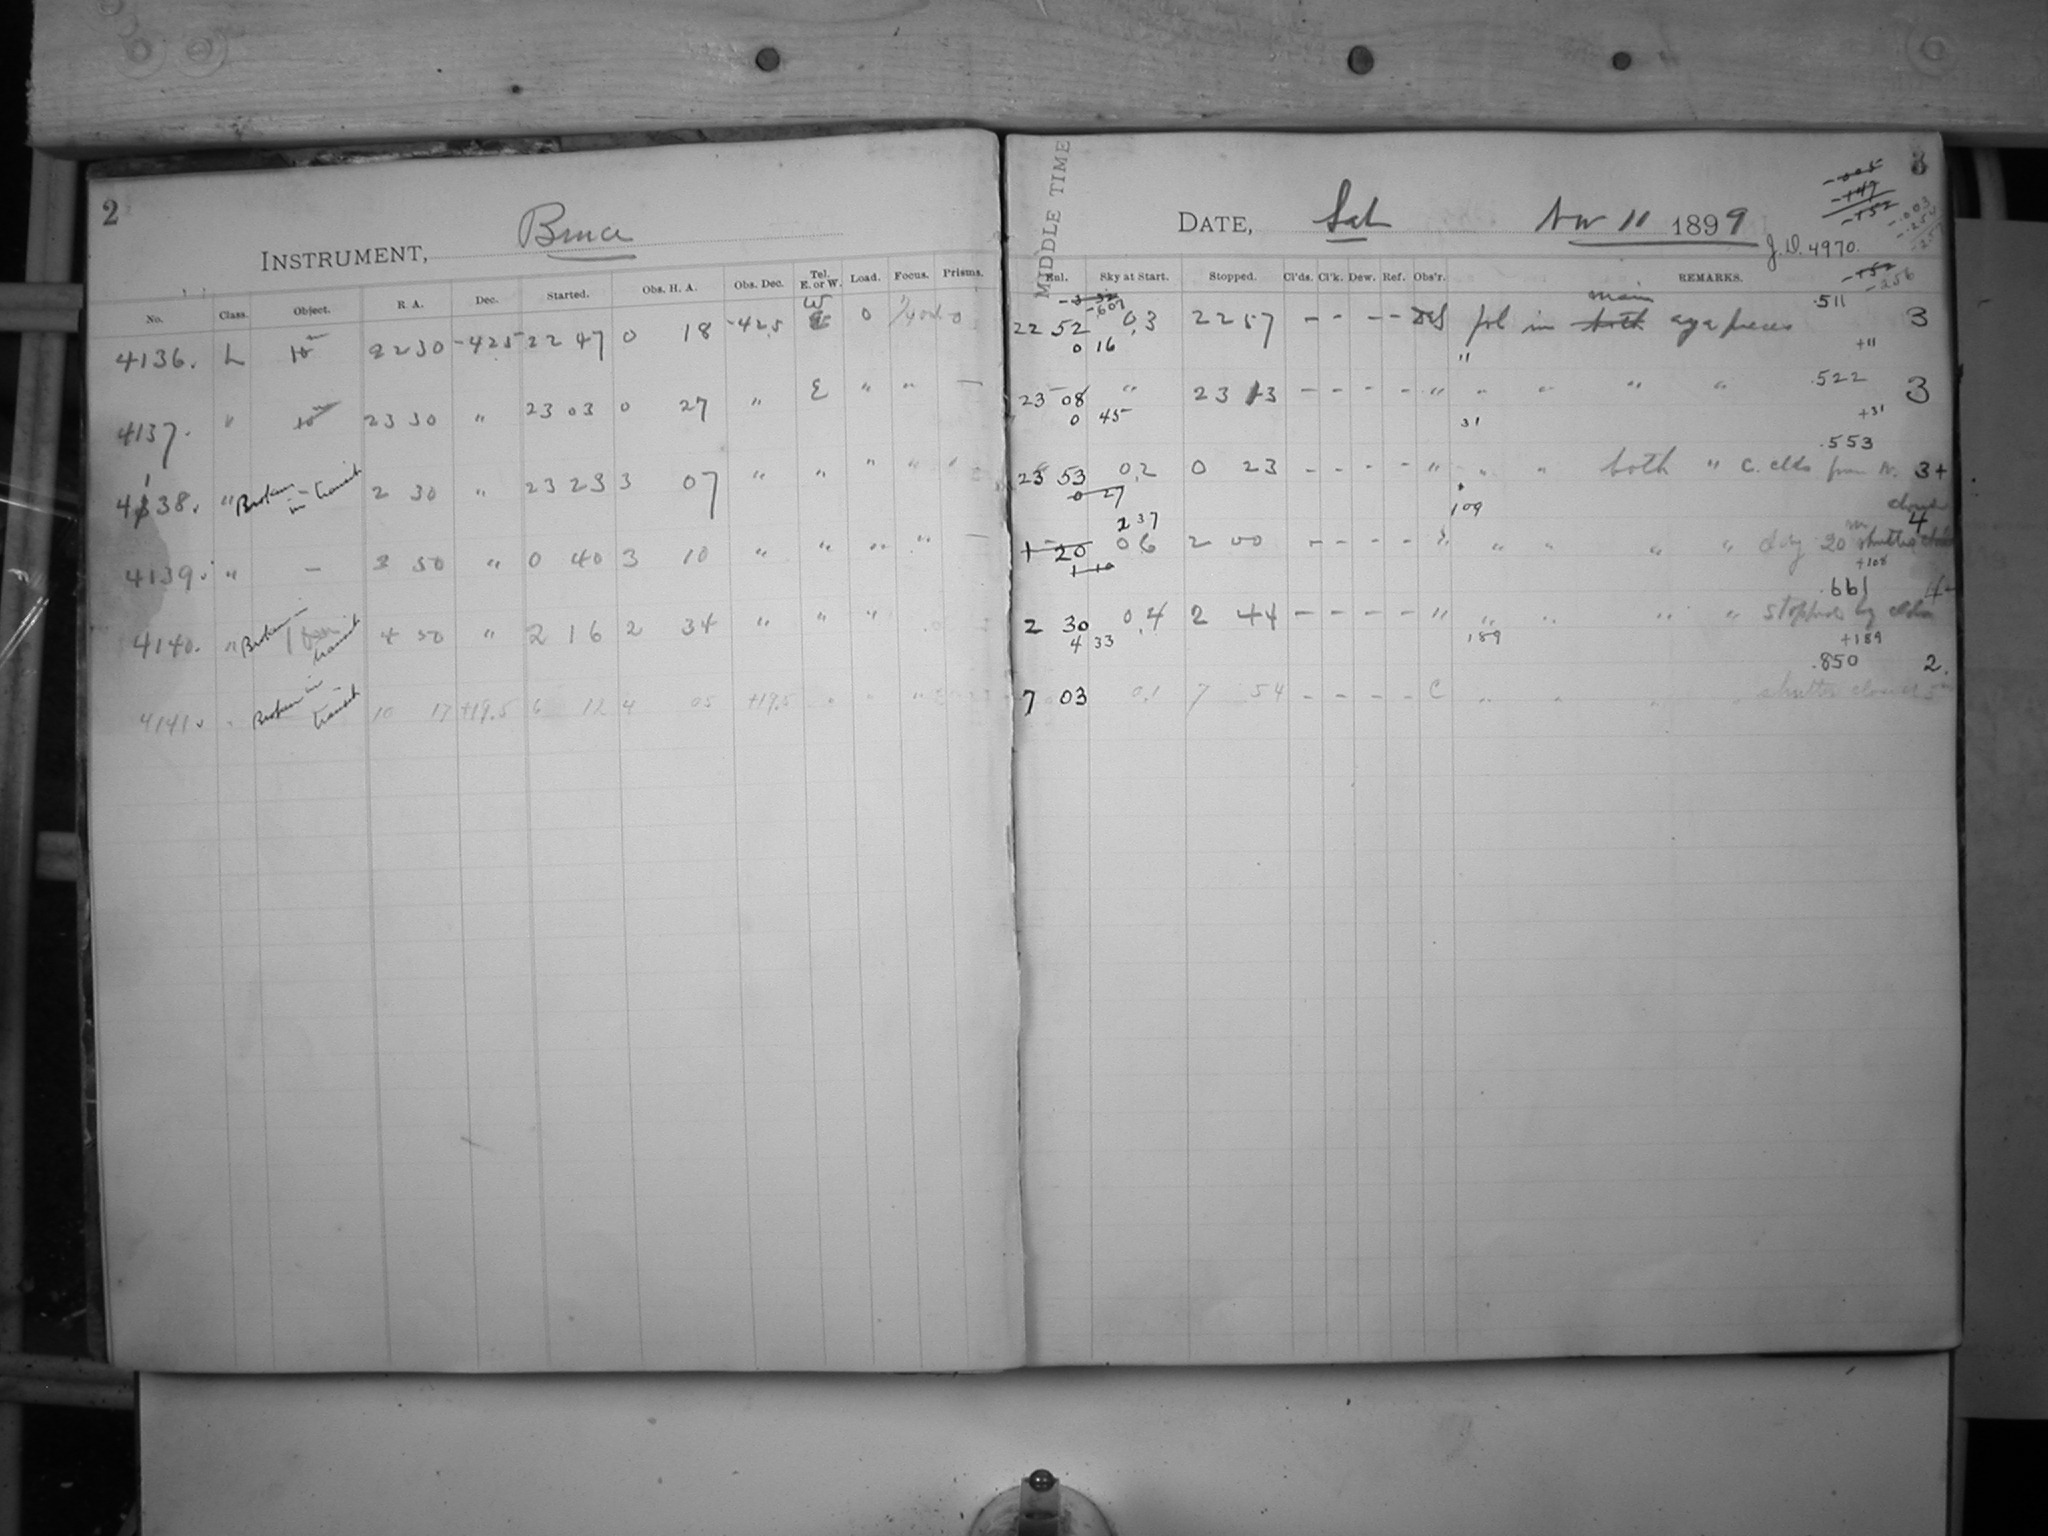 2
INSTRUMENT, Bruce
No. Class. Object. R. A. Dec. Started. Obs. H. A. Obs. Dec. Tel. E. or W. Load. Focus. Prisms.
4136. L 10m 22 30 -42.5 22 47 0 18 -42.5 W 0
4137. " 10m 23 30 " 23 03 0 27 " E " " —
4138. " Broken in transit 2 30 " 23 23 3 07 " " " " "
4139. " – 3 50 " 0 40 3 10 " " " " —
4140. " Broken in transit 4 50 " 2 16 2 34 " " "
4141. " Broken in transit 10 17 +19.5 6 12 4 05 +19.5 " " "
3
MIDDLE TIME
DATE, Sat Nov 11 1899
J.D. 4970.
-.005
-.003
-.252
-.256
Enl. Sky at Start. Stopped. Cl'ds. Cl'k. Dew. Ref. Obs'r. REMARKS.
-.607 .511
22 52 0.3 22 57 – – – – fol in main both eyepieces 3
0 16 11 +11
23 08 " 23 13 – – – – " " " " " .522 3
0 45 31 +31
.553
23 53 0.2 0 23 – – – – " " " both " C. clds from N. 3+
0 27 109
2 37 4
1 20 0.6 2 00 – – – – " " " " " 20m shutter closed
1 10 +108
.661
2 30 0.4 2 44 – – – – " " " " " Stopped by clds
4 33 189 +189
.850 2.
7 03 0.1 7 54 – – – – C " " " shutter closed 5m